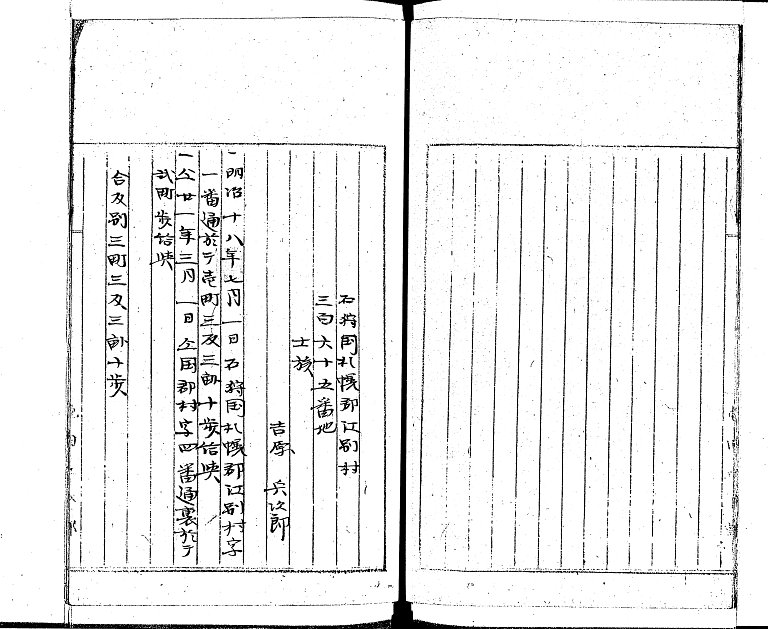 石狩国札幌郡江別村
三百六十五番地
士族
吉原 兵次郎
一明治十八年七月一日石狩国札幌郡江別村字
一番通於テ壱町三反三畝十歩給与
一仝廿一年三月一日仝国郡村字四番通裏於テ
弐町歩給与
合反別三町三反三畝十歩